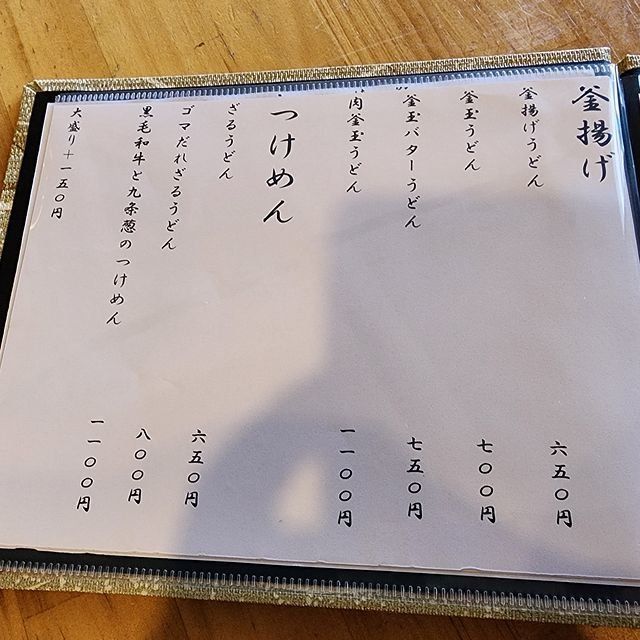 釜揚げ
釜揚げうどん 六五〇円
釜玉うどん 七〇〇円
釜玉バターうどん 七五〇円
肉釜玉うどん 一一〇〇円
つけめん
ざるうどん 六五〇円
ゴマだれざるうどん 八〇〇円
黒毛和牛と九条葱のつけめん 一一〇〇円
大盛り+一五〇円